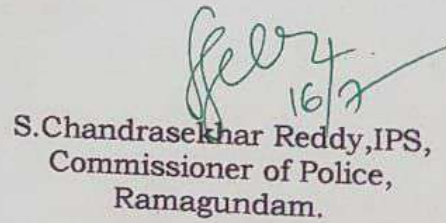 16/7
S.Chandrasekhar Reddy,IPS,
Commissioner of Police,
Ramagundam.